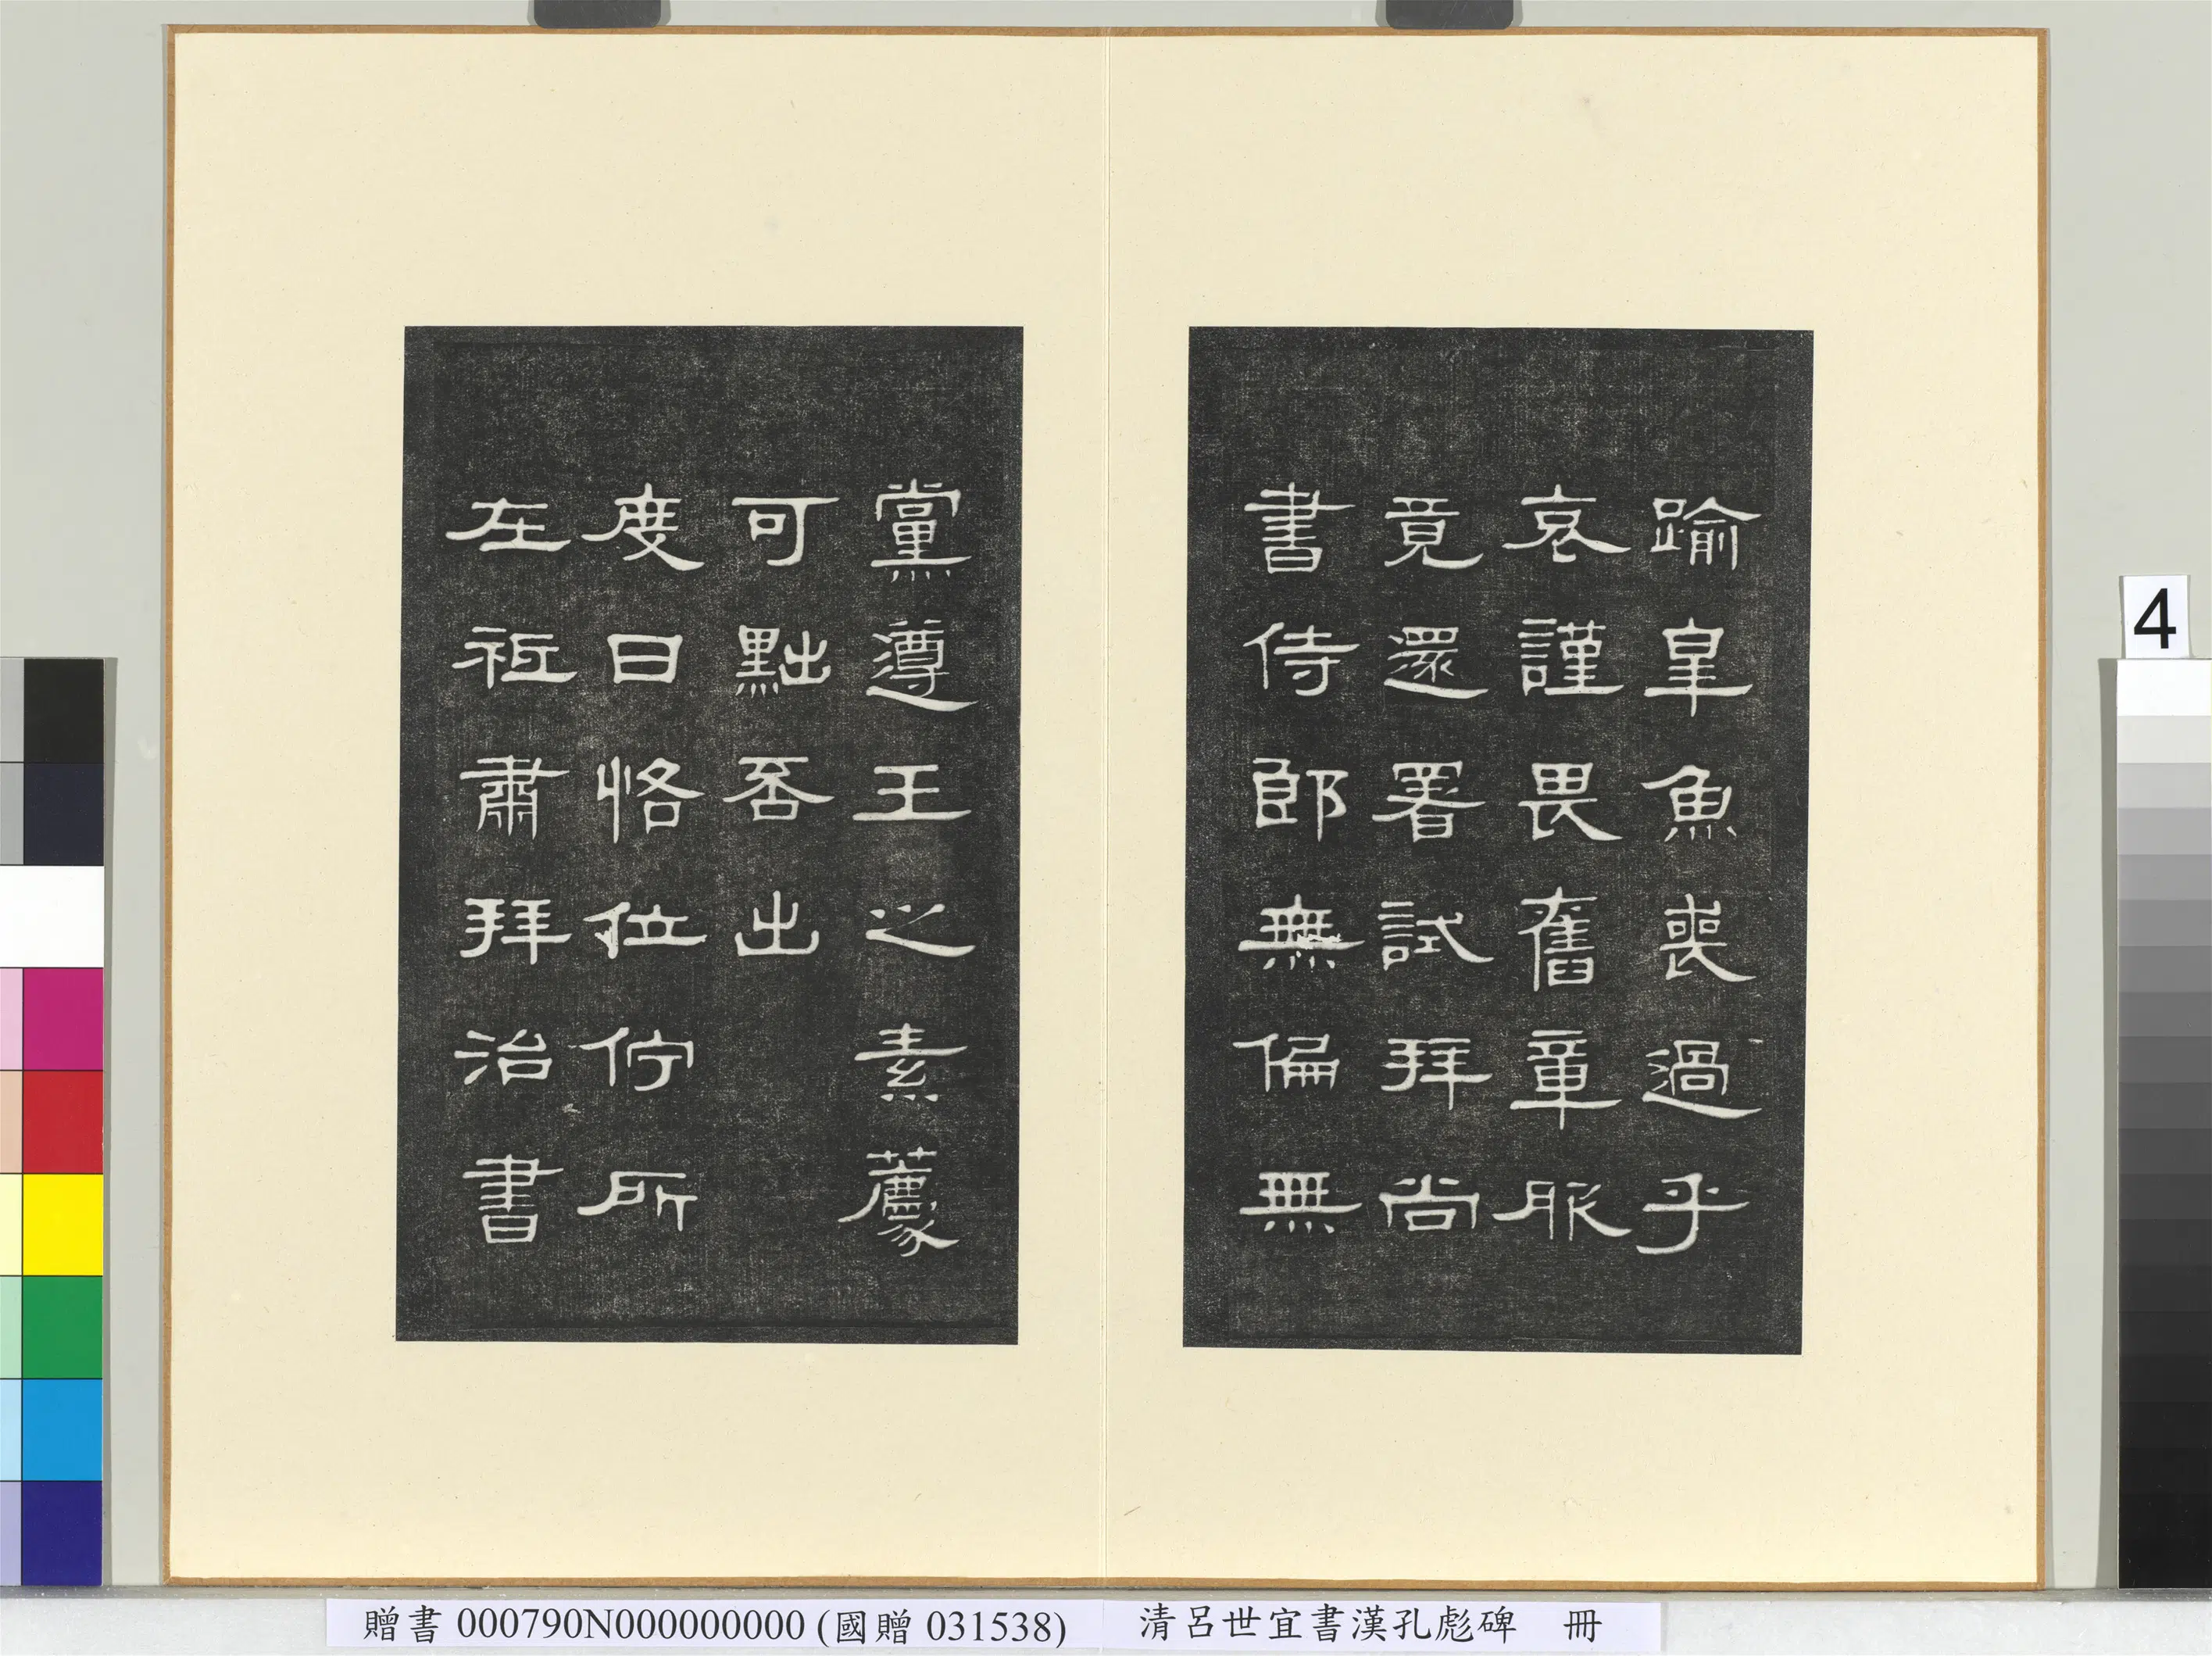 踰皐魚喪過乎
哀謹畏舊章服
竟還署試拜尚
書侍郎無偏無
黨遵王之素薦
可黜否出
度日恪位佇所
在祗肅拜治書
4
贈書 000790N000000000 (國贈 031538) 清呂世宜書漢孔彪碑 冊